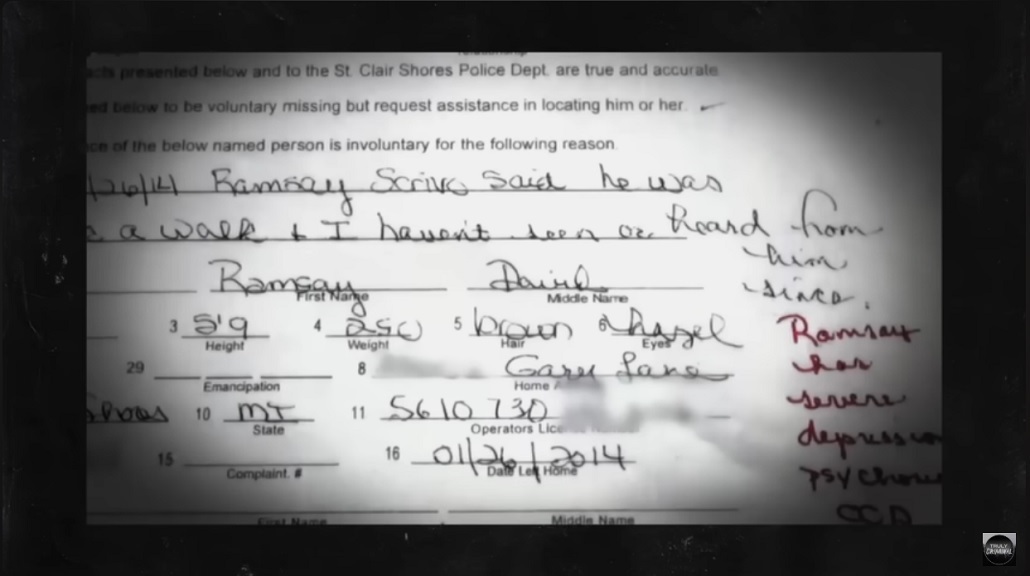 acts presented below and to the St. Clair Shores Police Dept. are true and accurate
ed below to be voluntary missing but request assistance in locating him or her. ✓
ce of the below named person is involuntary for the following reason.
/26/14 Ramsay Scrivo said he was
a walk & I haven't seen or heard from
him
since.
Ramsay David
First Name Middle Name
3 5'9 4 250 5 brown 6 hazel
Height Weight Hair Eyes
Ramsay
has
severe
depression
psychosis
OCD
29 8 Gary Lane
Emancipation Home A
10 MI 11 5610730
State Operators Lice
15 16 01/26/2014
Complaint. # Date Left Home
First Name Middle Name
TRULY CRIMINAL